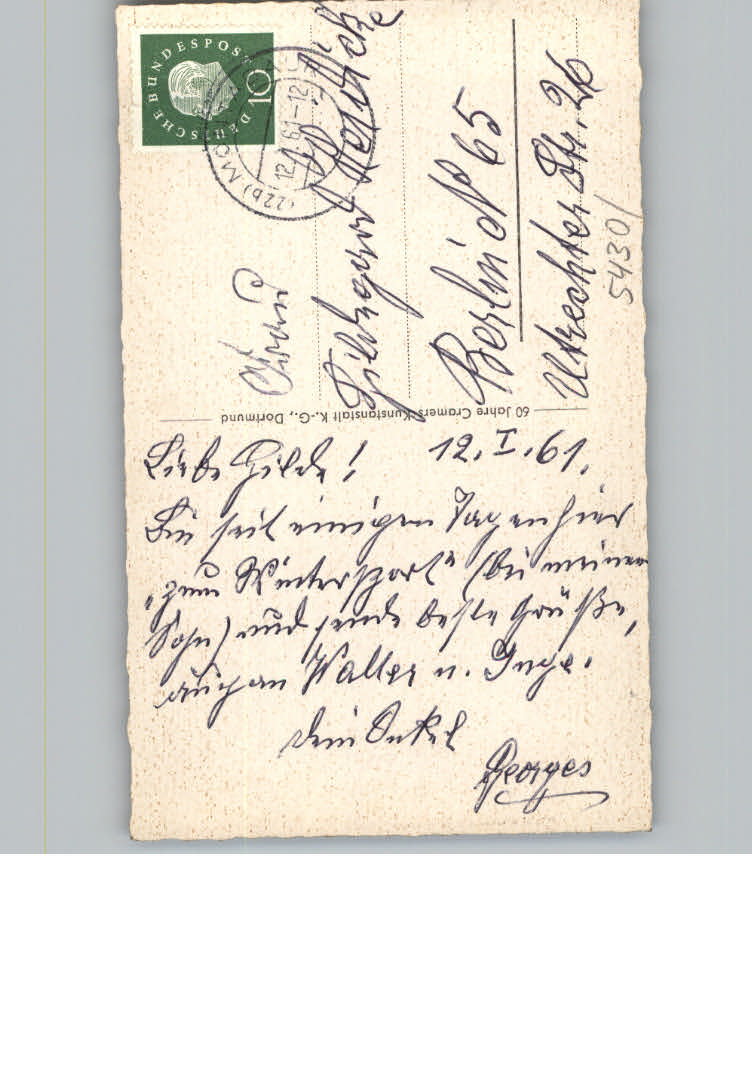 12. I. 61.
Liebe Hilde!
Bin seit einigen Tagen hier
"zum Wintersport" (bei meinem
Sohn) und sende beste Grüße,
auch an Walter u. Inge.
Dein Onkel
Georges
60 Jahre Cramers Kunstanstalt K.-G., Dortmund
DEUTSCHE BUNDESPOST
10
(22b) MO
12.1.61-12
Hildegard
Berlin N 65
Utrechter Str. 26
5430/